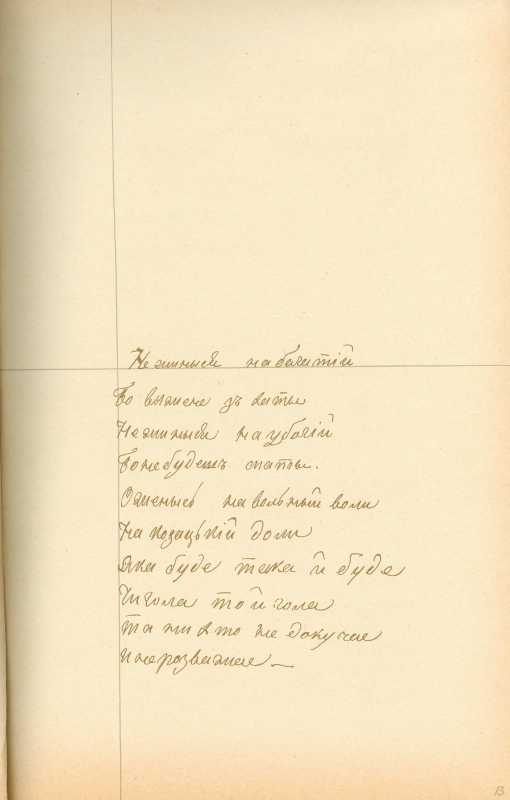 Не жинысь на богатій
Бо выжене зъ хаты
Не жинысь на убогій
Бо не будешъ спаты.
Оженысь на вольный воли
На козацькій доли
Яка буде така й буде
Чи гола то й гола
Та ни хто не докучае
И не розважае —
13